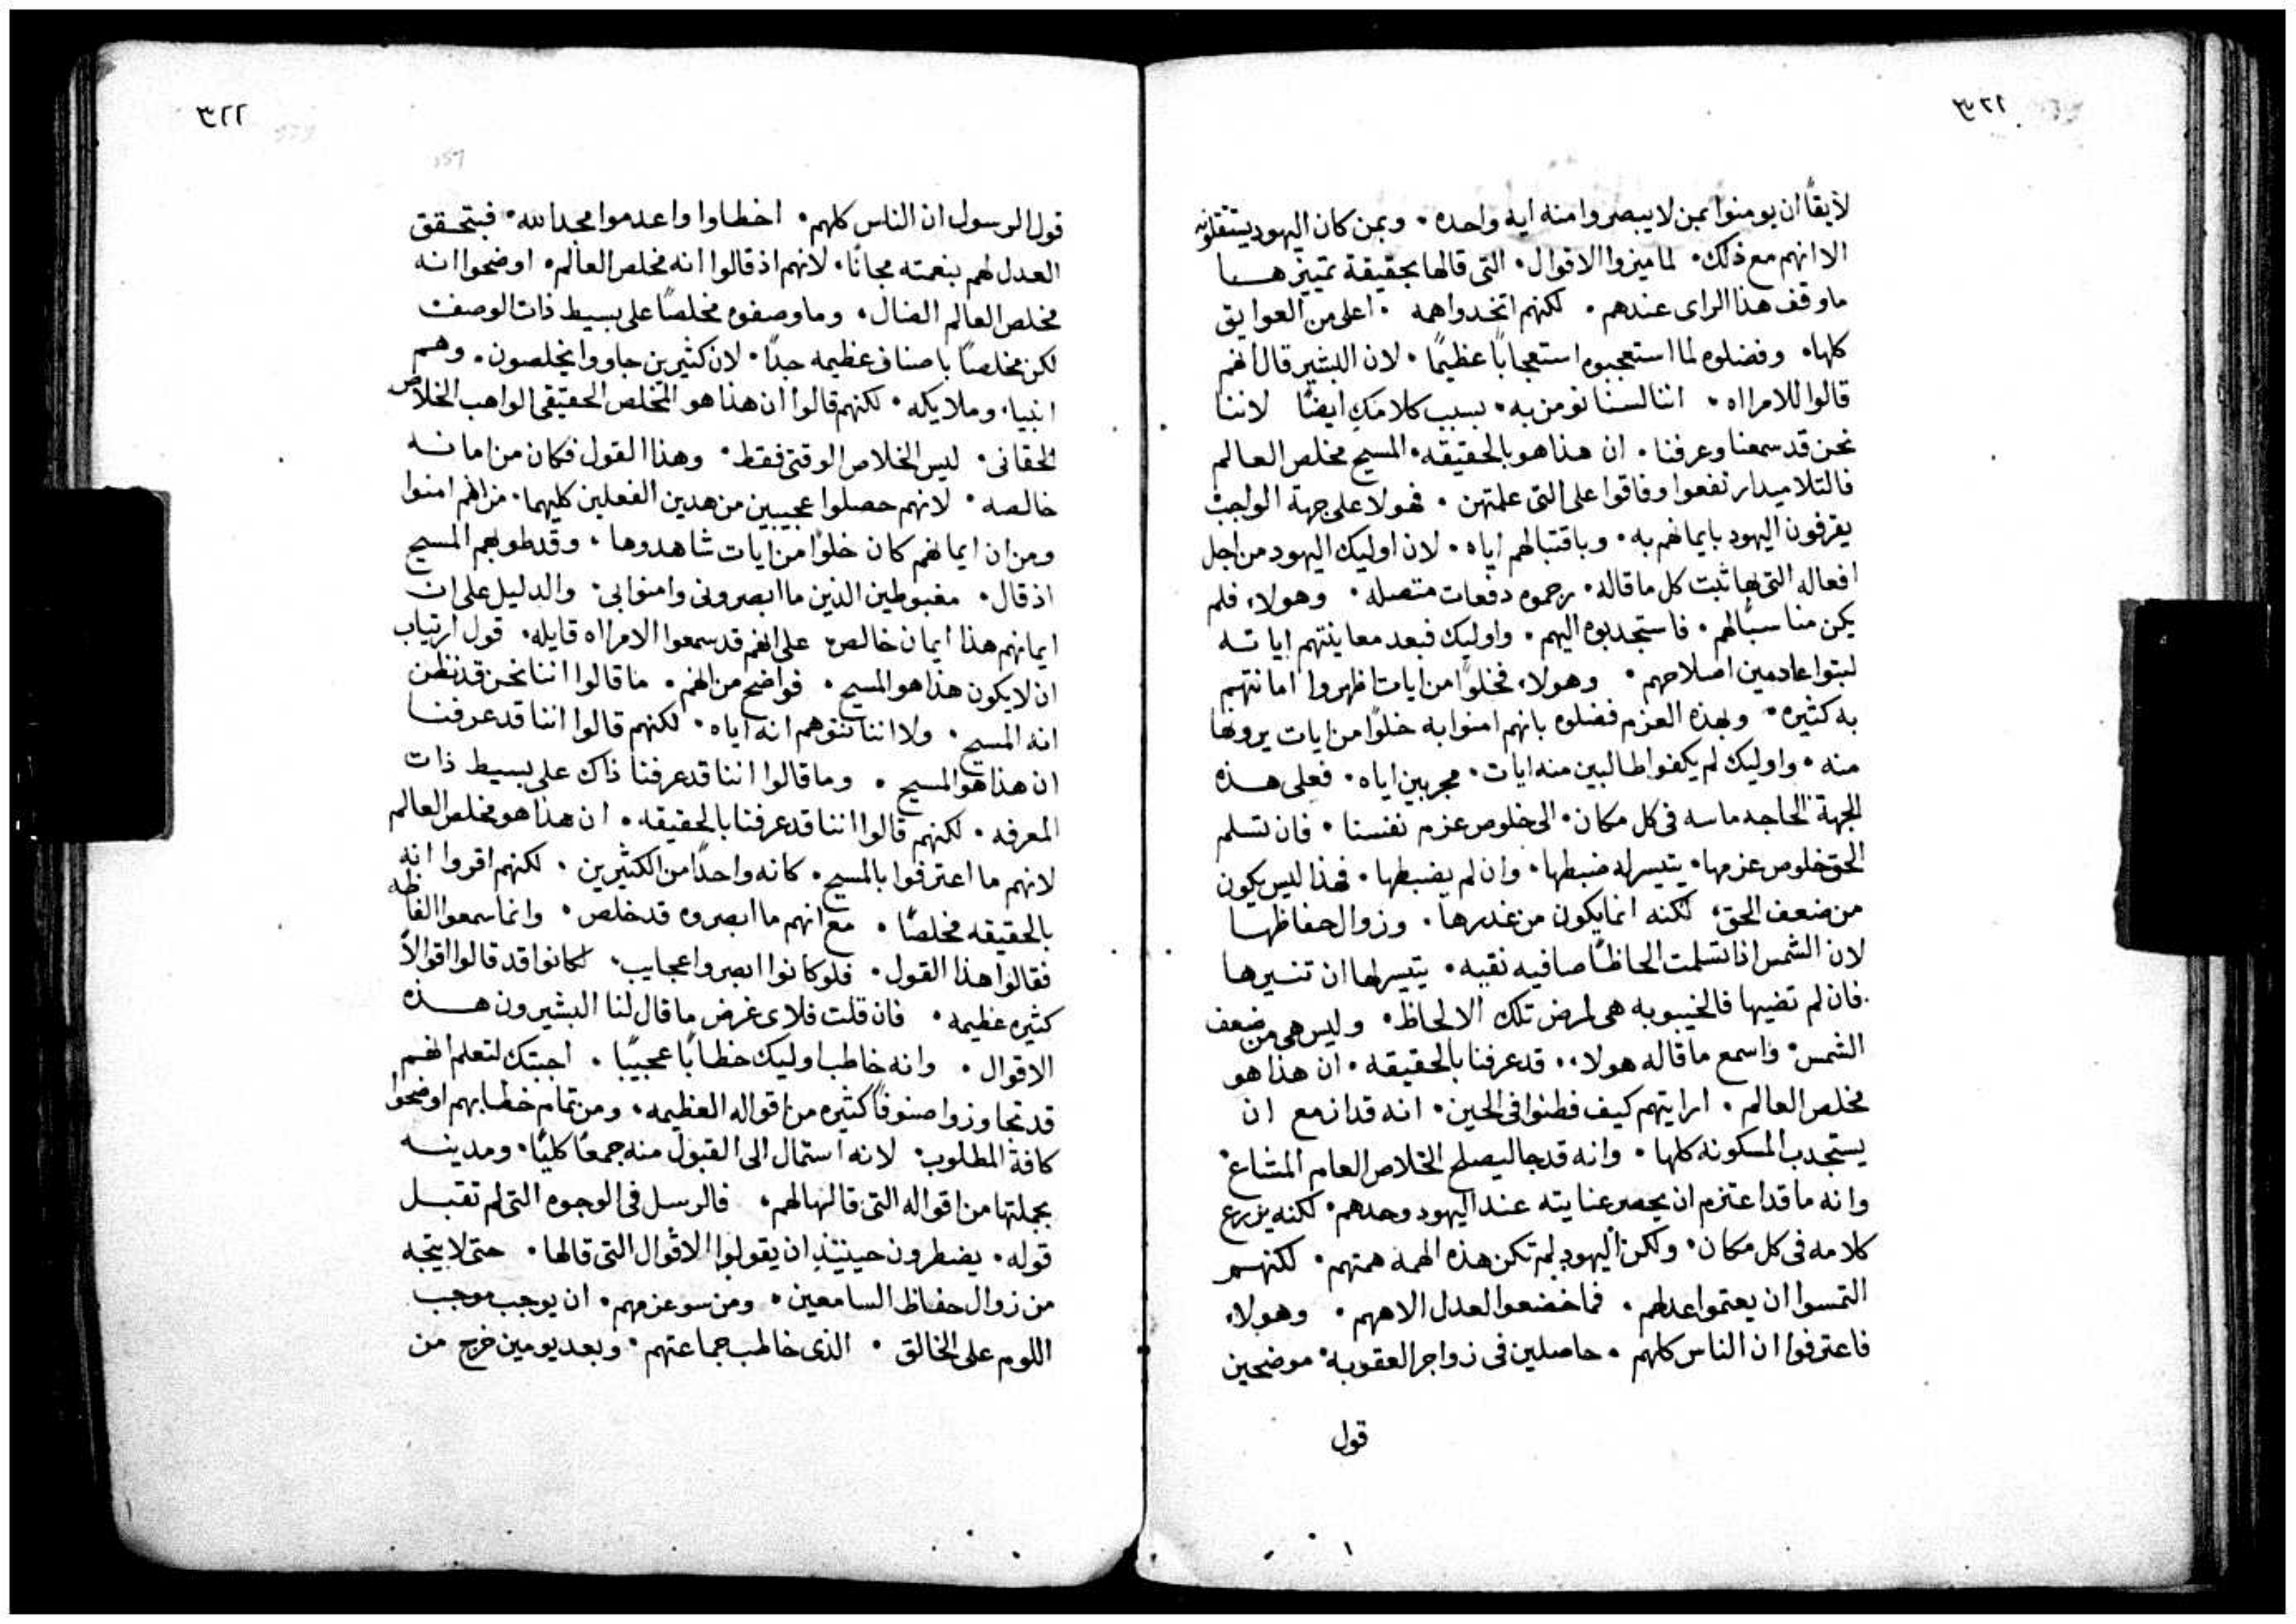 لايقًا ان يومنوا بمن لا يبصروا منه ايه واحده · وبمن كان اليهود يستثقلونه
الا انهم مع ذلك · لما ميزوا الاقوال · التى قالها بحقيقة تمييزهــا
ماوقف هذا الراى عندهم · لكنهم اتخدوا همه · اعلى من العوايق
كلها · وفضلوه لما استعجبوه استعجابًا عظيمًا · لان البشير قال انهم
قالوا للامراه · اننا لسنا نومن به · بسبب كلامكِ ايضًا لاننا
نحن قد سمعنا وعرفنا · ان هذا هو بالحقيقه · المسيح مخلص العالم
فالتلاميد ارتفعوا وفاقوا على التى علمتهن · فهولا على جهة الواجب
يقرفون اليهود بايمانهم به · وباقتبالهم اياه · لان اوليك اليهود من اجل
افعاله التى بها ثبت كل ما قاله · رجموه دفعات متصله · وهولاء فلم
يكن مناسبًا لهم · فاستجدبوه اليهم · واوليك فبعد معاينتهم اياتــه
لبتوا عادمين اصلاحهم · وهولاء فخلوًا من ايات اظهروا امانتهم
به كثيره · وبهذه العزم فضلوه بانهم امنوا به خلوًا من ايات يرونها
منه · واوليك لم يكفوا طالبين منه ايات · مجربين اياه · فعلى هــذه
الجهة الحاجه ماسه فى كل مكان · الى خلوص عزم نفسنا · فان تسلم
الحق خلوص عزمها · يتيسر له ضبطها · وان لم يضبطها · فهذا ليس يكون
من ضعف الحق · لكنه انما يكون من غدرها · وزوال حفاظهــا
لان الشمس اذا تسلمت الحاظًا صافيه نقيه · يتيسر لها ان تنيرها
فان لم تضيها فالخيبوبه هى لمرض تلك الالحاظ · وليس هى من ضعف
الشمس · واسمع ما قاله هولاء · قد عرفنا بالحقيقه · ان هذا هو
مخلص العالم · ارايتهم كيف فطنوا فى الحين · انه قد ازمع ان
يستجدب المسكونه كلها · وانه قد جا ليصلح الخلاص العام المشاع ·
وانه ما قد اعتزم ان يحصر عنايته عند اليهود وحدهم · لكنه يزرع
كلامه فى كل مكان · ولكن اليهود لم تكن هذه الهمه همتهم · لكنهــم
التمسوا ان يعتموا عدلهم · فما خضعوا لعدل الاههم · وهولاء
فاعترفوا ان الناس كلهم · حاصلين فى زواجر العقوبه · موضحين
قول
٣٢٢
قول الرسول ان الناس كلهم · اخطاوا واعدموا مجد الله · فبتحـقق
العدل لهم بنعمته مجانًا · لانهم اذ قالوا انه مخلص العالم · اوضحوا انه
مخلص العالم الضال · وما وصفوه مخلصًا على بسيط ذات الوصف
لكن مخلصًا باصناف عظيمه جدًا · لان كثيرين جاووا يخلصون · وهــم
انبياء وملايكه · لكنهم قالوا ان هذا هو المخلص الحقيقى الواهب الخلاص
الحقانى · ليس الخلاص الوقتى فقط · وهذا القول فكان من امانــه
خالصه · لانهم حصلوا عجيبين من هدين الفعلين كليهما · من انهم امنوا
ومن ان ايمانهم كان خلوًا من ايات شاهدوها · وقد طوبهم المسيح
اذ قال · مغبوطين الذين ما ابصرونى وامنوا بى · والدليل على ان
ايمانهم هذا ايمان خالص على انهم قد سمعوا الامراه قايله · قول ارتياب
ان لا يكون هذا هو المسيح · فواضح من انهم · ما قالوا اننا نحن قد نظن
انه المسيح · ولا اننا نتوهم انه اياه · لكنهم قالوا اننا قد عرفنــا
ان هذا هو المسيح · وما قالوا اننا قد عرفنا ذاك على بسيط ذات
المعرفه · لكنهم قالوا اننا قد عرفنا بالحقيقه · ان هذا هو مخلص العالم
لانهم ما اعترفوا بالمسيح · كانه واحدًا من الكثيرين · لكنهم اقروا انه
بالحقيقه مخلصًا · مع انهم ما ابصروه قد خلص · وانما سمعوا الفاظه
فقالوا هذا القول · فلو كانوا ابصروا عجايب · لكانوا قد قالوا اقوالاً
كثيره عظيمه · فان قلت فلاى غرض ما قال لنا البشيرون هــذه
الاقوال · وانه خاطب اوليك خطابًا عجيبًا · اجبتك لتعلم انهــم
قد تجاوزوا صنوفًا كثيره من اقواله العظيمه · ومن تمام خطابهم اوضحوا
كافة المطلوب · لانه استمال الى القبول منه جمعًا كليًا · ومدينــه
بجملتها من اقواله التى قالها لهم · فالرسل فى الوجوه التى لم تقبــل
قوله · يضطرون حينيذٍ ان يقولوا الاقوال التى قالها · حتى لا يتجه
من زوال حفاظ السامعين · ومن سو عزمهم · ان يوجب موجب
اللوم على الخالق · الذى خاطب جماعتهم · وبعد يومين خرج من